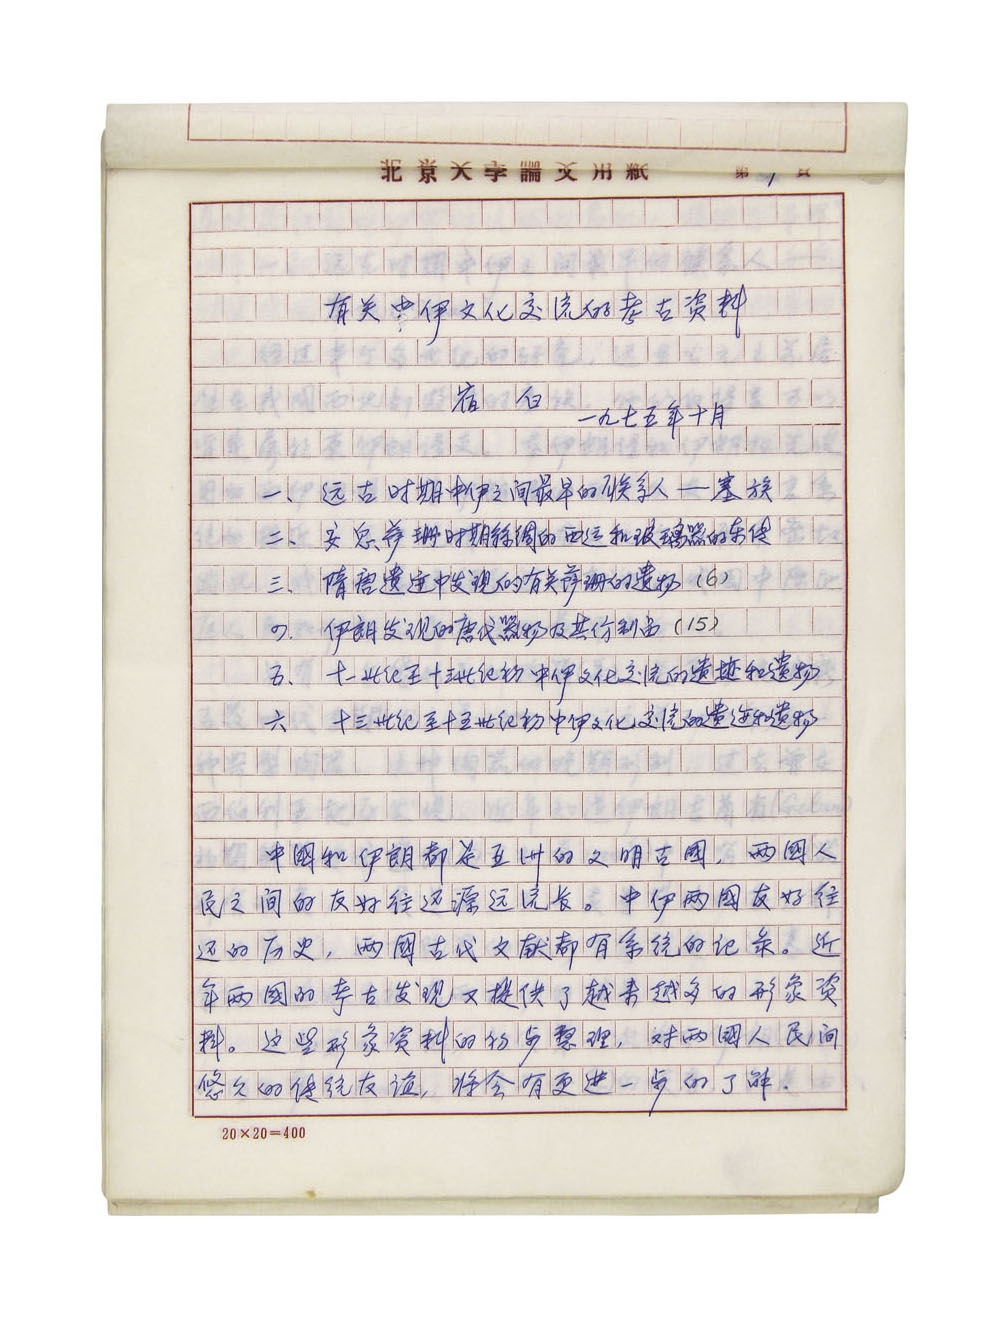 北京大學論文用紙 第 1 頁
有关中伊文化交流的考古资料
宿白
一九七五年十月
一、远古时期中伊之间最早的联系人—塞族
二、安息萨珊时期絲绸的西运和玻璃器的东传
三、隋唐遗迹中发现的有关萨珊的遗物(6)
四、伊朗发现的唐代器物及其仿制品(15)
五、十一世纪至十三世纪初中伊文化交流的遗迹和遗物
六 十三世纪至十五世纪初中伊文化交流的遗迹和遗物
中國和伊朗都是亚洲的文明古國，两國人
民之间的友好往还源远流长。中伊两國友好往
还的历史，两國古代文献都有系统的记录。近
年两國的考古发现又提供了越来越多的形象资
料。这些形象资料的初步整理，对两國人民间
悠久的传统友谊，将会有更进一步的了解．
20×20=400